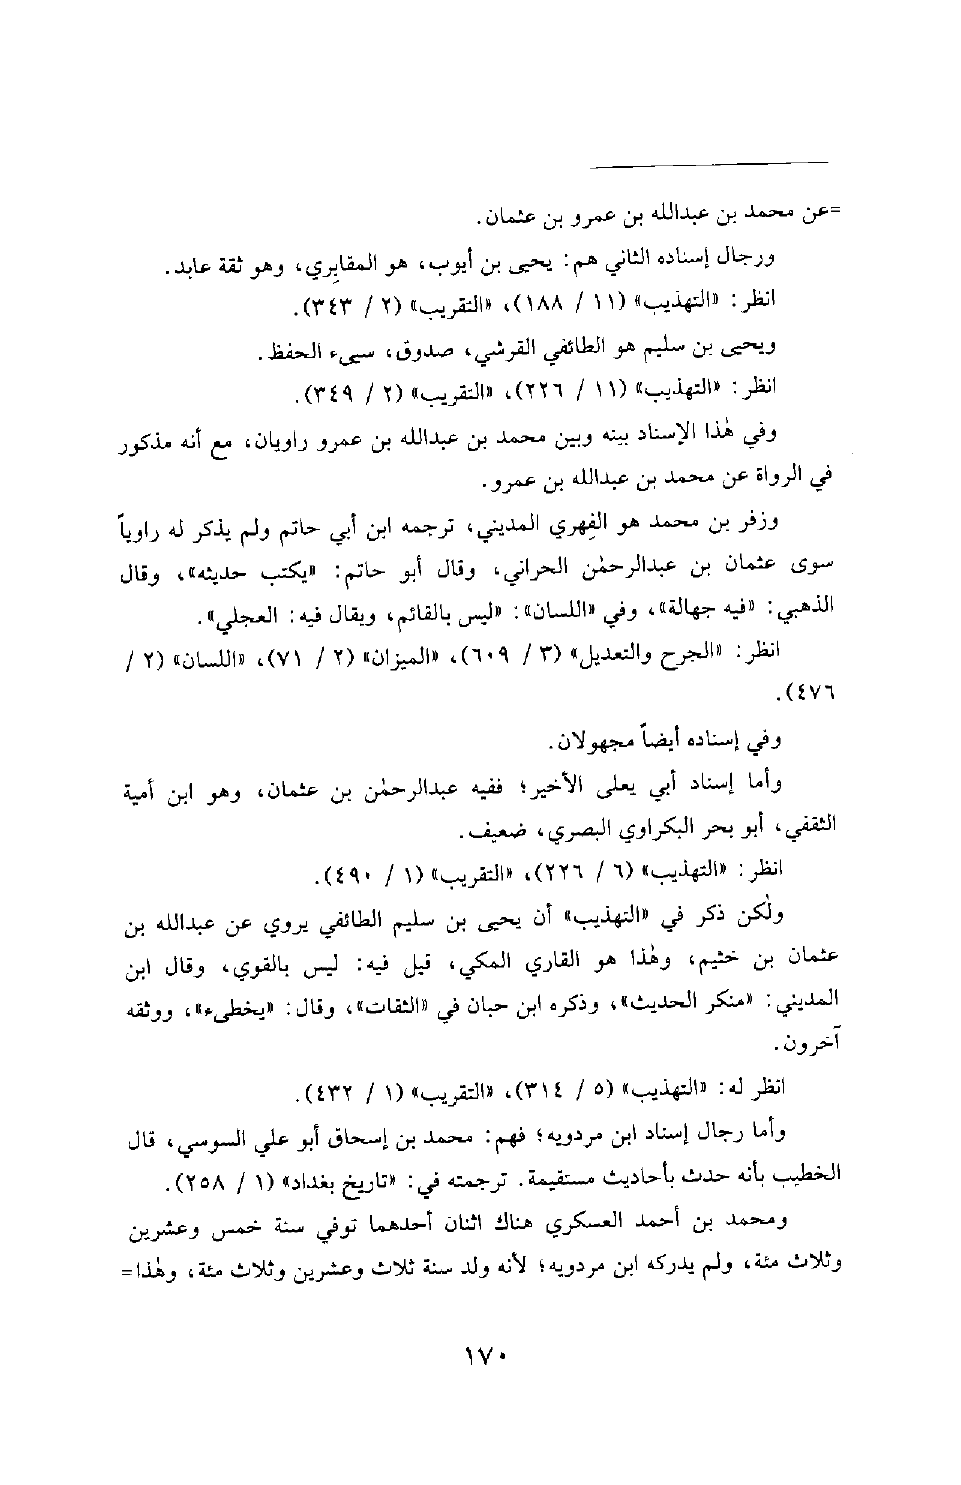 =عن محمد بن عبدالله بن عمرو بن عثمان.
ورجال إسناده الثاني هم: يحيى بن أيوب، هو المقابِري، وهو ثقة عابد.
انظر: «التهذيب» (١١ / ١٨٨)، «التقريب» (٢ / ٣٤٣).
ويحيى بن سليم هو الطائفي القرشي، صدوق، سيىء الحفظ.
انظر: «التهذيب» (١١ / ٢٢٦)، «التقريب» (٢ / ٣٤٩).
وفي هٰذا الإسناد بينه وبين محمد بن عبدالله بن عمرو راويان، مع أنه مذكور
في الرواة عن محمد بن عبدالله بن عمرو.
وزفر بن محمد هو الفِهري المديني، ترجمه ابن أبي حاتم ولم يذكر له راوياً
سوى عثمان بن عبدالرحمٰن الحراني، وقال أبو حاتم: «يكتب حديثه»، وقال
الذهبي: «فيه جهالة»، وفي «اللسان»: «ليس بالقائم، ويقال فيه: العجلي».
انظر: «الجرح والتعديل» (٣ / ٦٠٩)، «الميزان» (٢ / ٧١)، «اللسان» (٢ /
٤٧٦).
وفي إسناده أيضاً مجهولان.
وأما إسناد أبي يعلى الأخير؛ ففيه عبدالرحمٰن بن عثمان، وهو ابن أمية
الثقفي، أبو بحر البكراوي البصري، ضعيف.
انظر: «التهذيب» (٦ / ٢٢٦)، «التقريب» (١ / ٤٩٠).
ولٰكن ذكر في «التهذيب» أن يحيى بن سليم الطائفي يروي عن عبدالله بن
عثمان بن خثيم، وهٰذا هو القاري المكي، قيل فيه: ليس بالقوي، وقال ابن
المديني: «منكر الحديث»، وذكره ابن حبان في «الثقات»، وقال: «يخطىء»، ووثقه
آخرون.
انظر له: «التهذيب» (٥ / ٣١٤)، «التقريب» (١ / ٤٣٢).
وأما رجال إسناد ابن مردويه؛ فهم: محمد بن إسحاق أبو علي السوسي، قال
الخطيب بأنه حدث بأحاديث مستقيمة. ترجمته في: «تاريخ بغداد» (١ / ٢٥٨).
ومحمد بن أحمد العسكري هناك اثنان أحدهما توفي سنة خمس وعشرين
وثلاث مئة، ولم يدركه ابن مردويه؛ لأنه ولد سنة ثلاث وعشرين وثلاث مئة، وهٰذا=
١٧٠